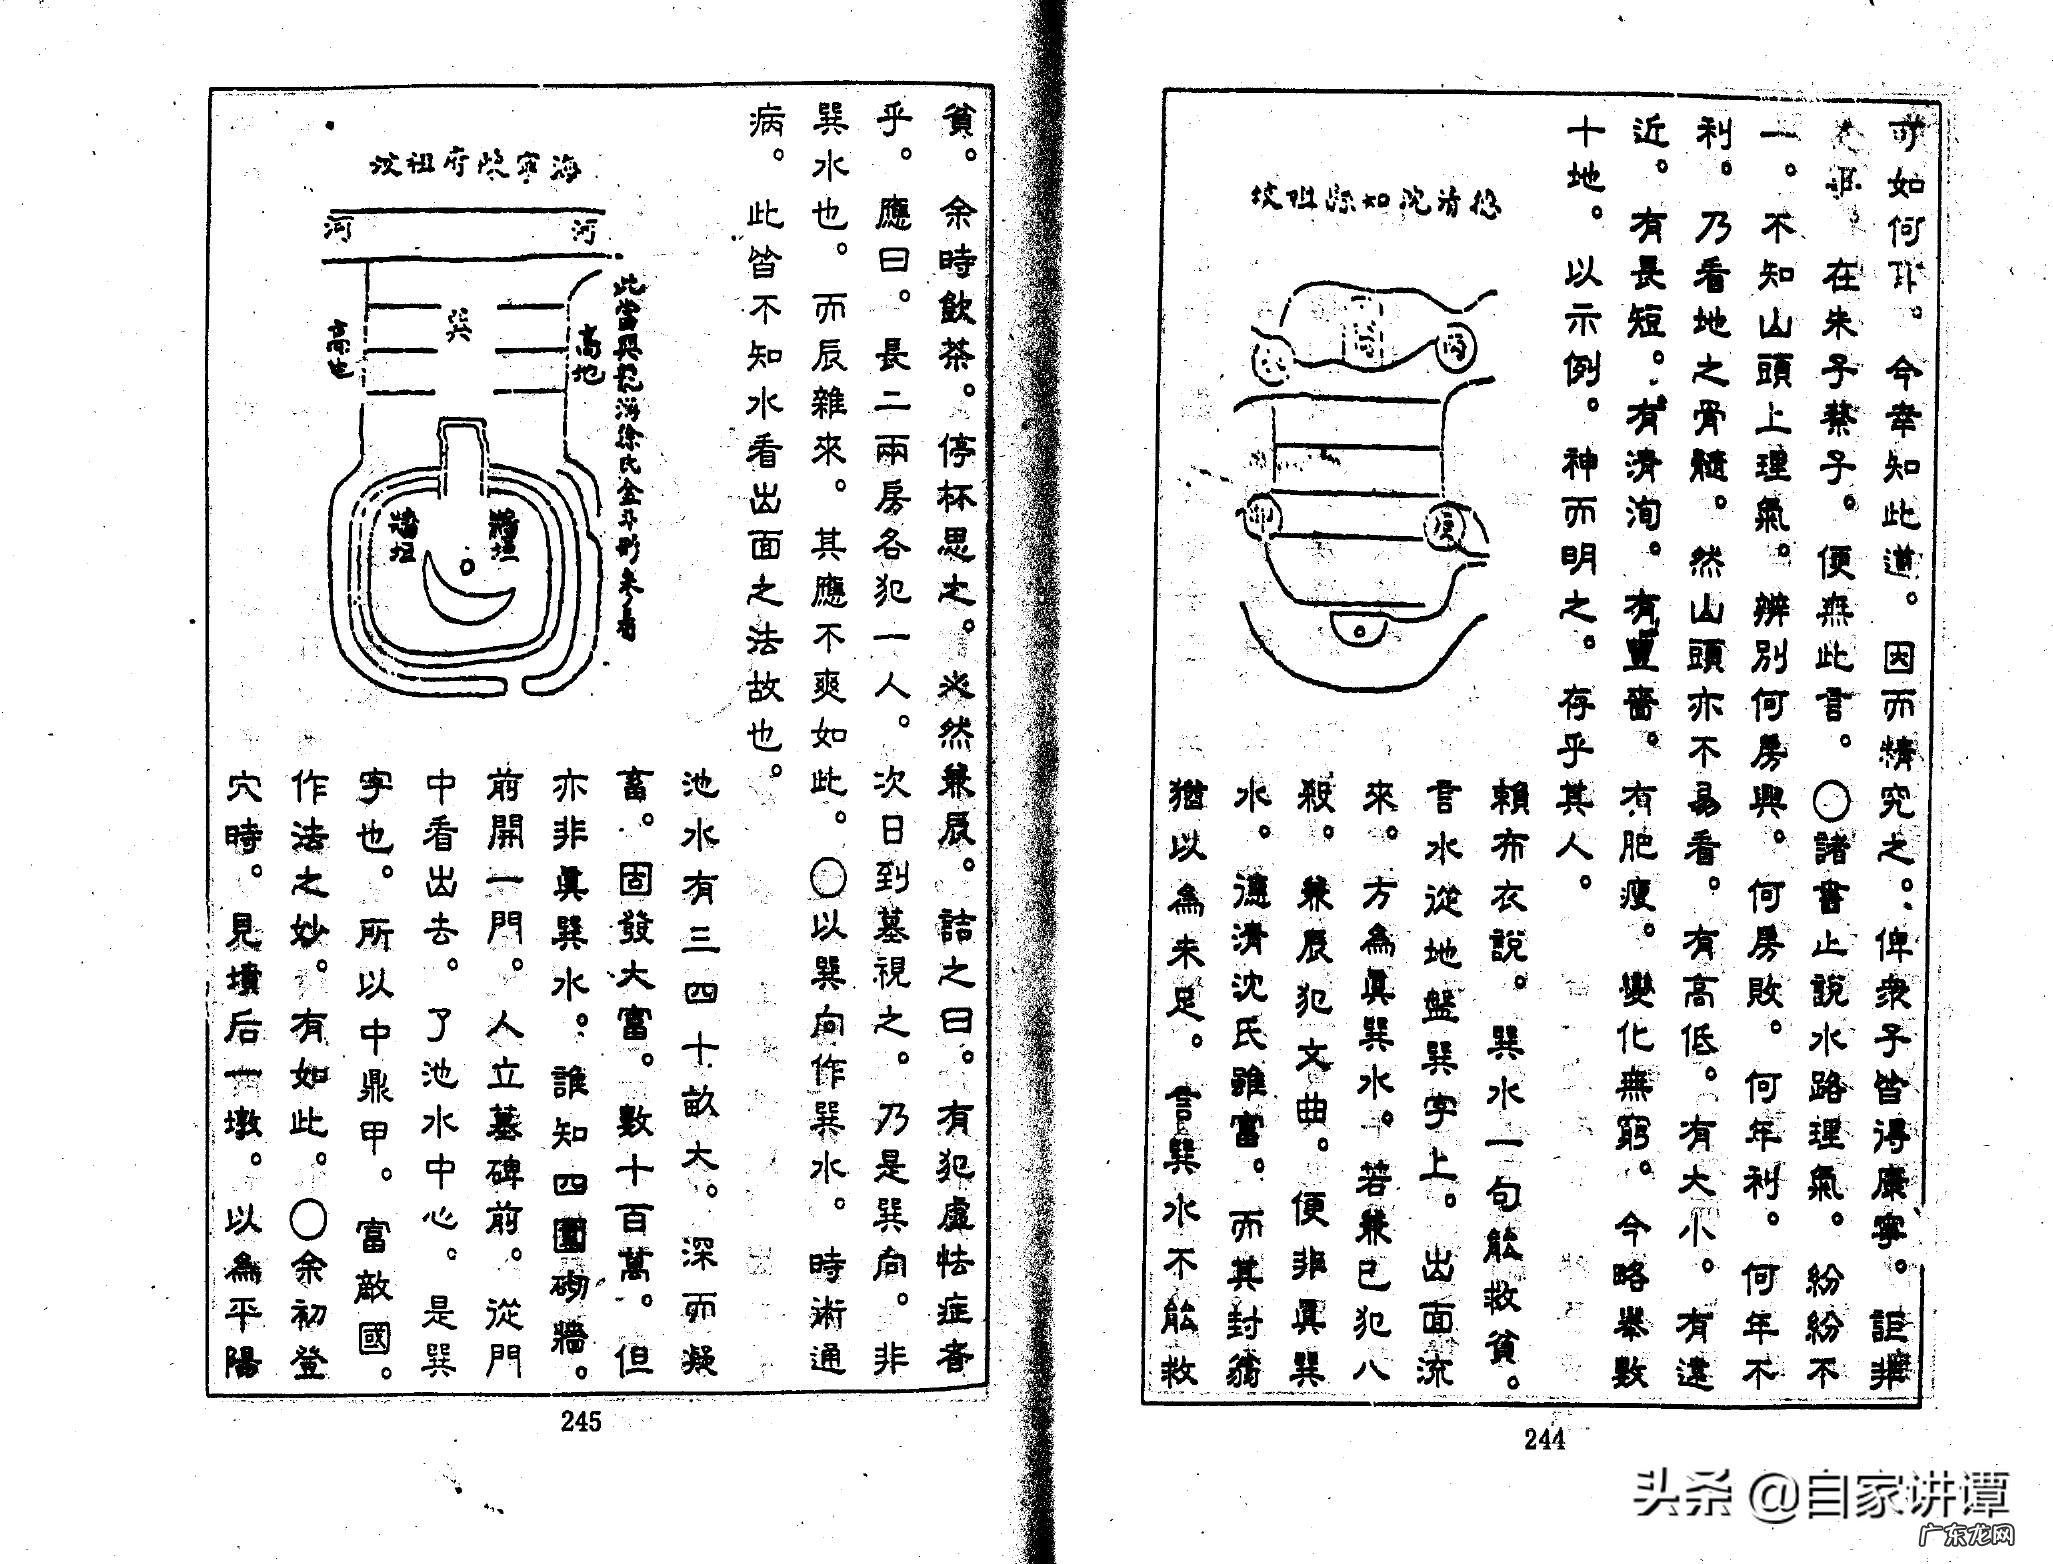 可如何耳。今幸知此道。因而精究之。俾衆子皆得康寧。詎非
在朱子蔡子。便無此言。〇諸書止說水路理氣。紛紛不
一。不知山頭上理氣。辨別何房興。何房敗。何年利。何年不
利。乃看地之骨髓。然山頭亦不易看。有高低。有大小。有遠
近。有長短。有濟洵。有豐嗇。有肥瘦。變化無窮。今略舉數
十地。以示例。神而明之。存乎其人。
賴布衣說。巽水一句能救貧。
言水從地盤巽字上。出面流
來。方為真巽水。若兼巳犯八
殺。兼辰犯文曲。便非真巽
水。德清沈氏雖富。而其封翁
猶以為未足。言巽水不能救
244
貧。余時飲茶。停杯思之。必然兼辰。詰之曰。有犯虛怯症者
乎。應曰。長二兩房各犯一人。次日到墓視之。乃是巽向。非
巽水也。而辰雜來。其應不爽如此。〇以巽向作巽水。時術通
病。此皆不知水看出面之法故也。
海寧陳府祖坟
河
河
巽
高地
高地
牆垣
牆垣
池水有三四十畝大。深而凝
畜。固發大富。數十百萬。但
亦非真巽水。誰知四圍砌牆。
前開一門。人立墓碑前。從門
中看出去。了池水中心。是巽
字也。所以中鼎甲。富敵國。
作法之妙。有如此。〇余初登
穴時。見墳后一墩。以為平陽
245
头条 @自家讲谭
广东龙网